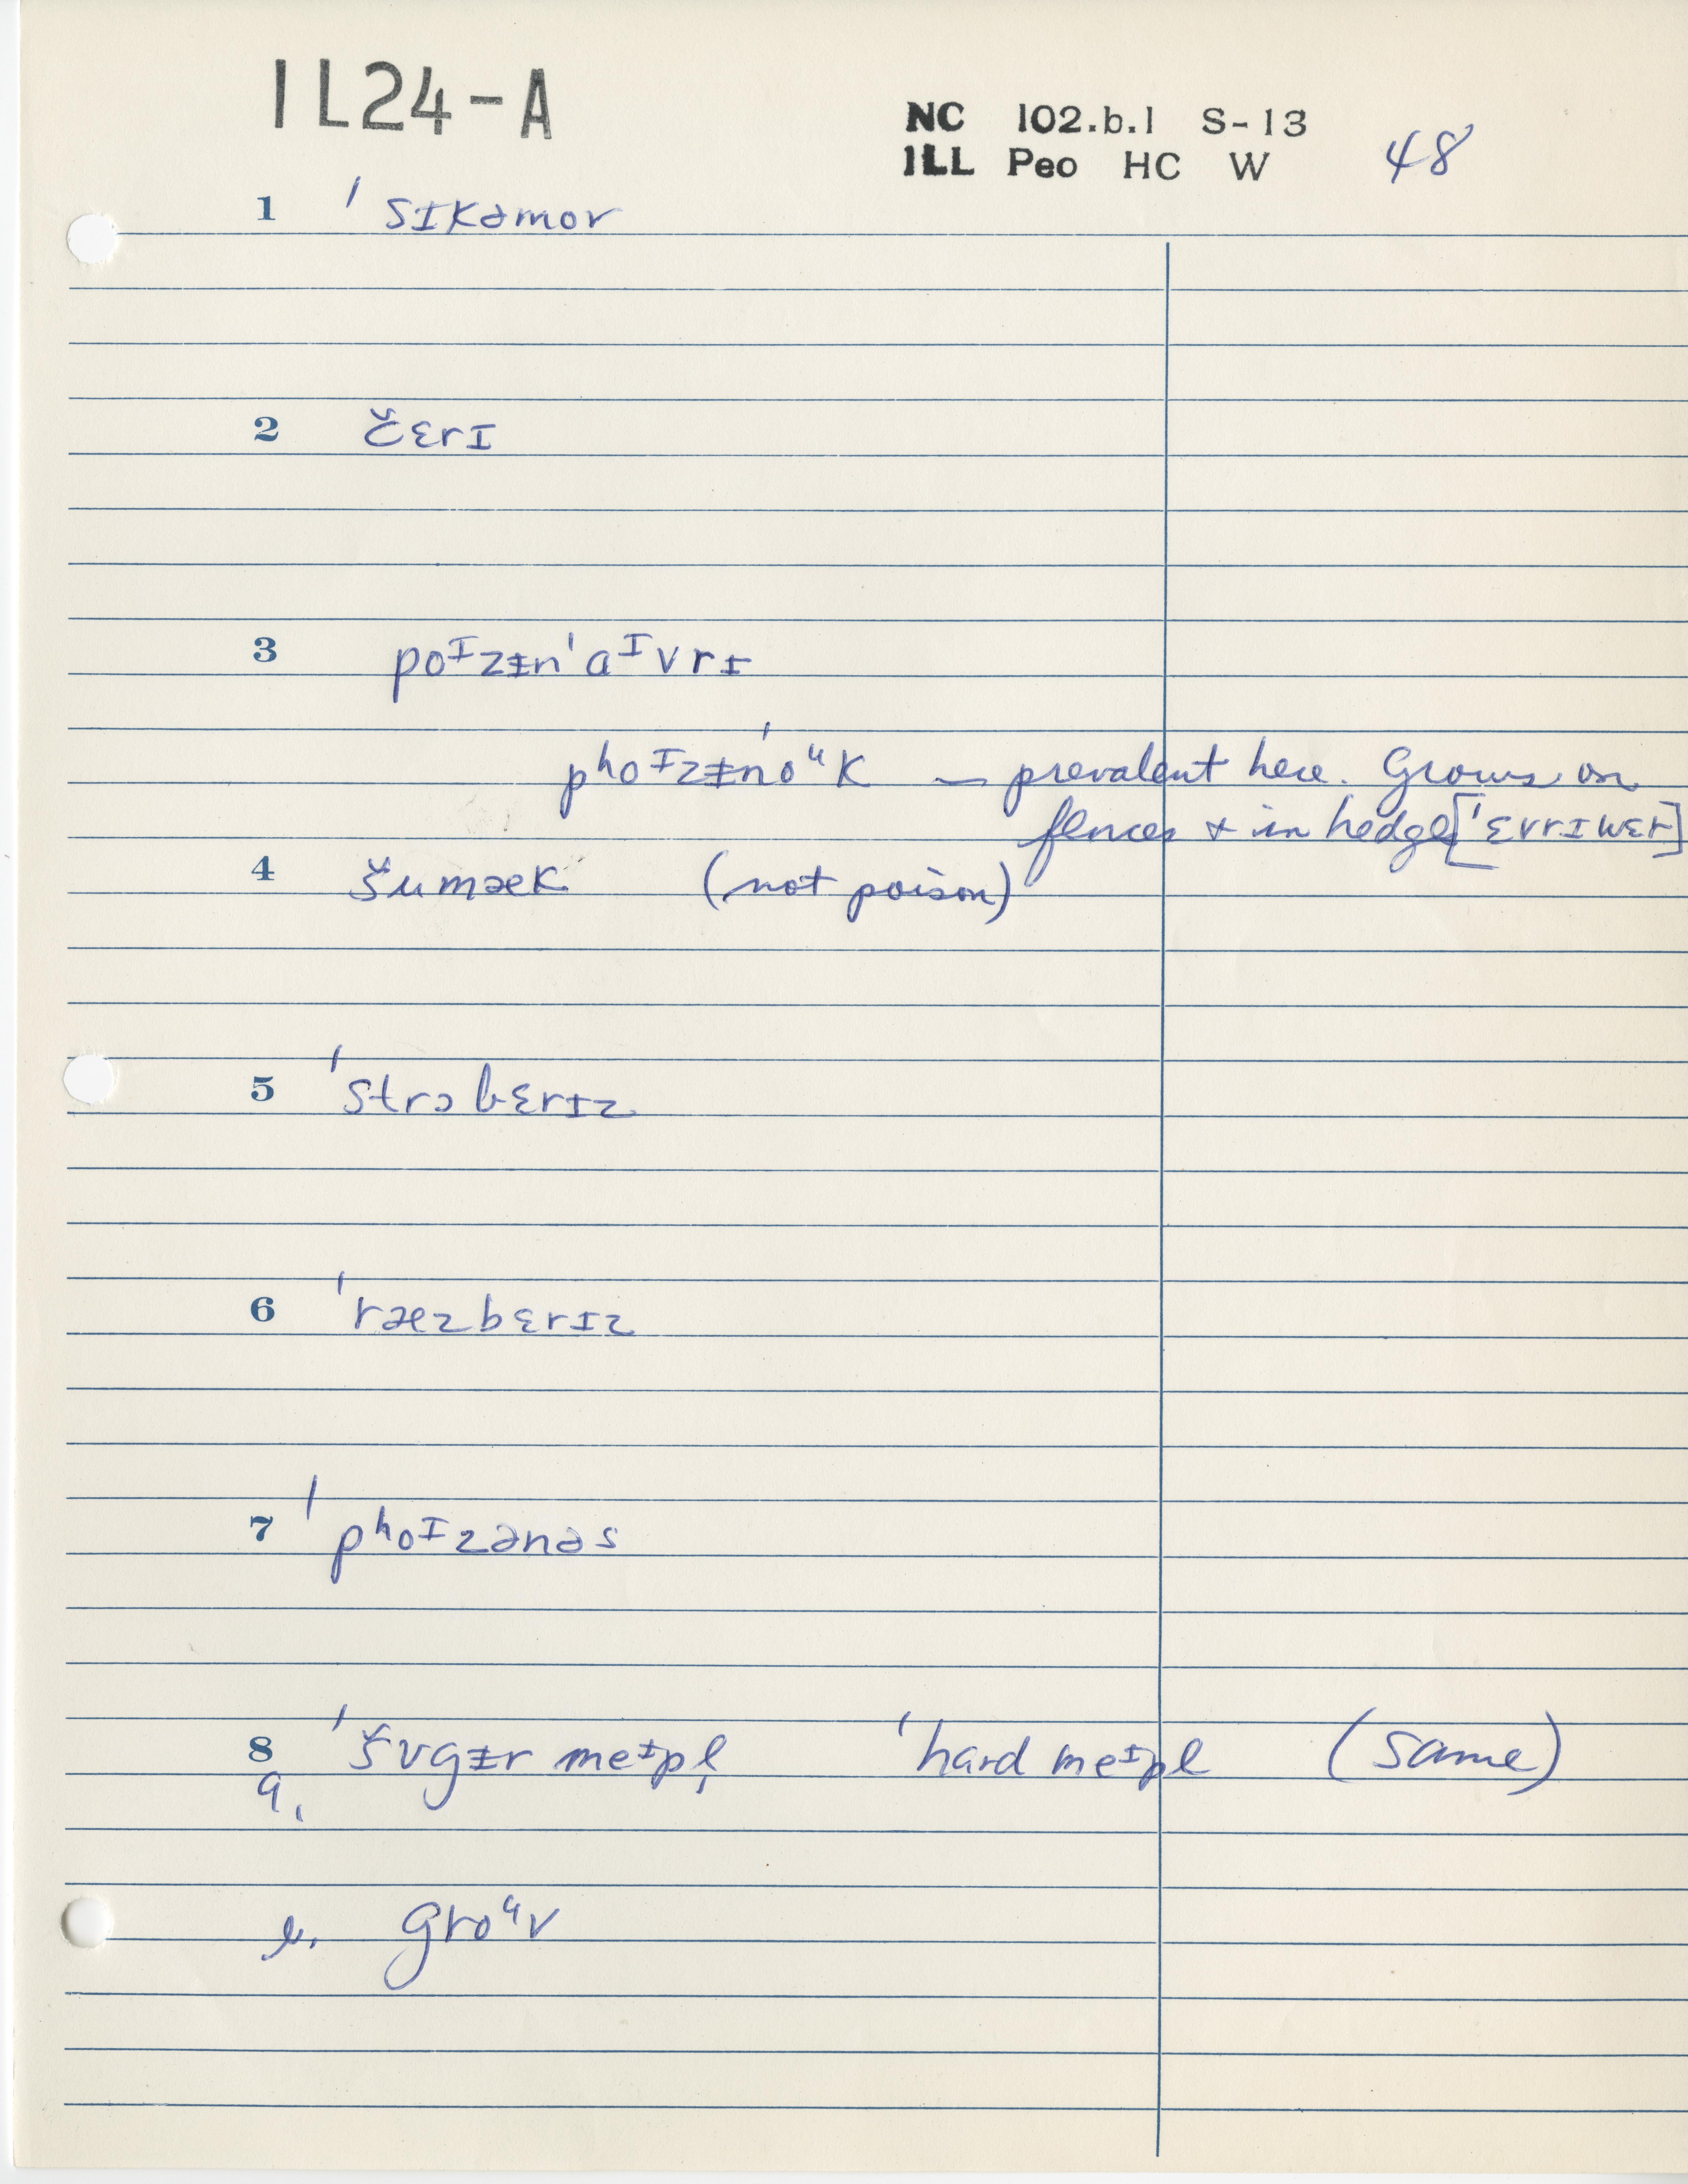 IL24-A
NC 102.b.1 S-13
ILL Peo HC W 48
1 ˈsɪkəmor
2 čɛrɪ
3 poᶦzᵻnˈaᶦvrɪ
pʰoᶦzᵻnˈoᵘk – prevalent here. Grows on
fences & in hedge [ˈɛvrɪwɛr]
4 šumæk (not poison)
5 ˈstrɔbɛrɪz
6 ˈræzbɛrɪz
7 ˈpʰoᶦzənəs
8 ˈšʊgᵻr meᶦpl̩ ˈhard meᶦpl (same)
a.
b. groᵘv